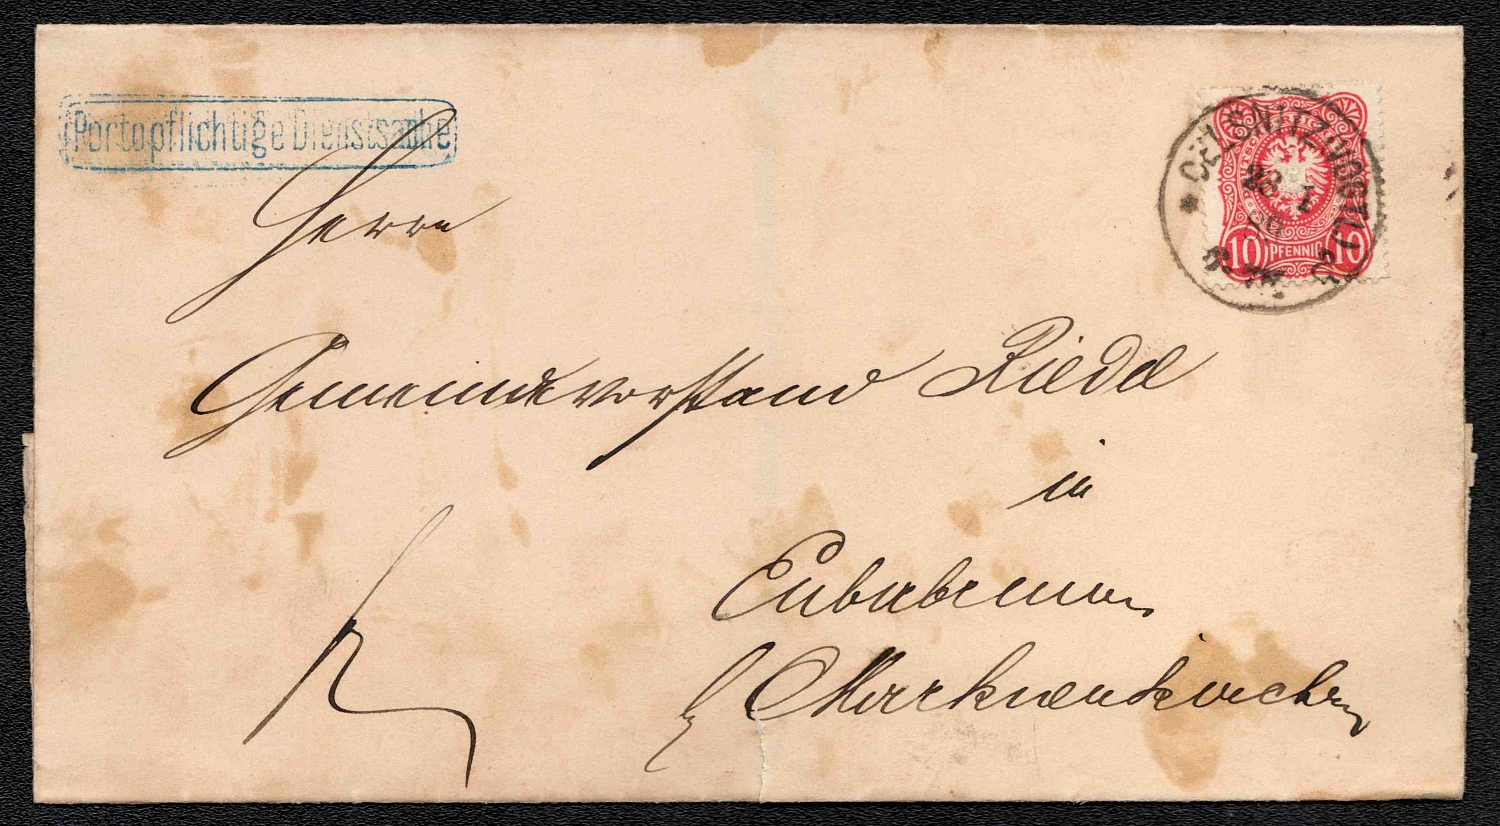 Portopflichtige Dienstsache
OELSNITZ (VOGTL)
10 PFENNIG 10
Herrn
Gemeindevorstand Riedel
in
Eubabrunn
b/ Markneukirchen